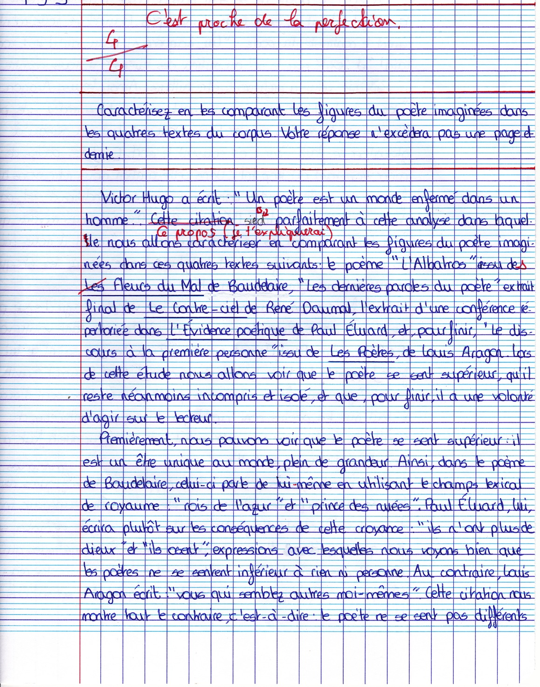 C'est proche de la perfection.
4
4
Caractérisez en les comparant les figures du poète imaginées dans
les quatres textes du corpus Votre réponse n'excèdra pas une page et
demie.
Victor Hugo a écrit : "Un poète est un monde enfermé dans un
homme". Cette citation sied parfaitement à cette analyse dans laquel-
Ce propos (je t'expliquerai)
le nous allons caractériser en comparant les figures du poète imagi-
nées dans ces quatres textes suivants : le poème "L'Albatros" issu des
Les Fleurs du Mal de Baudelaire, "Les dernières paroles du poète" extrait
final de Le Contre-ciel de René Daumal, l'extrait d'une conférence ré-
pertoriée dans L'Evidence poétique de Paul Eluard, et, pour finir, "Le dis-
cours à la première personne" issu de Les Poètes, de Louis Aragon. Lors
de cette étude nous allons voir que le poète se sent supérieur, qu'il
reste néanmoins incompris et isolé, et que, pour finir, il a une volonté
d'agir sur le lecteur.
Premièrement, nous pouvons voir que le poète se sent supérieur : il
est un être unique au monde, plein de grandeur Ainsi, dans le poème
de Baudelaire, celui-ci parle de lui-même en utilisant le champs lexical
de royaume : "rois de l'azur" et "prince des nuées". Paul Éluard, lui,
écrira plutôt sur les conséquences de cette croyance : "ils n'ont plus de
dieux" et "ils osent", expressions avec lesquelles nous voyons bien que
les poètes ne se sentent inférieur à rien ni personne. Au contraire, Louis
Aragon écrit : "vous qui semblez autres moi-mêmes" Cette citation nous
montre tout le contraire, c'est-à-dire : le poète ne se sent pas différents